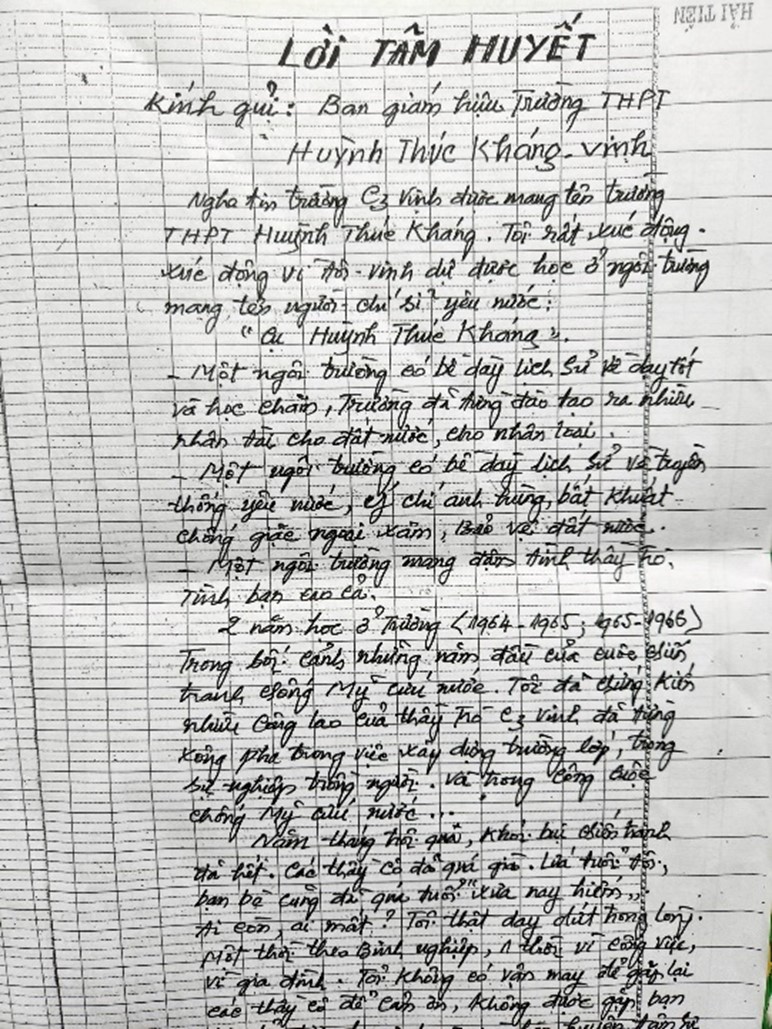 HẢI TIẾN
LỜI TÂM HUYẾT
Kính gửi: Ban giám hiệu Trường THPT
Huỳnh Thúc Kháng - Vinh
Nghe tin trường C3 Vinh được mang tên trường
THPT Huỳnh Thúc Kháng. Tôi rất xúc động.
xúc động vì tôi vinh dự được học ở ngôi trường
mang tên người chí sĩ yêu nước:
"Cụ Huỳnh Thúc Kháng".
- Một ngôi trường có bề dày lịch sử về dạy tốt
và học chăm, Trường đã từng đào tạo ra nhiều
nhân tài cho đất nước, cho nhân loại.
- Một ngôi trường có bề dày lịch sử về truyền
thống yêu nước, ý chí anh hùng, bất khuất
chống giặc ngoại xâm, Bảo vệ đất nước.
- Một ngôi trường mang đậm tình thầy trò.
Tình bạn cao cả.
2 năm học ở Trường (1964-1965; 1965-1966)
Trong bối cảnh những năm đầu của cuộc chiến
tranh chống Mỹ cứu nước. Tôi đã chứng kiến
nhiều công lao của thầy trò C3 Vinh đã từng
xông pha trong việc xây dựng trường lớp, trong
sự nghiệp trồng người. và trong công cuộc
chống Mỹ cứu nước...
Năm tháng trôi qua, khói bụi chiến tranh
đã hết. Các thầy cô đã quá già. Lứa tuổi tôi,
bạn bè cũng đã quá tuổi "xưa nay hiếm".
Ai còn, ai mất? Tôi thật day dứt trong lòng.
Một thời theo Binh nghiệp, 1 thời vì công việc,
vì gia đình. Tôi không có vận may để gặp lại
các thầy cô để cảm ơn, không được gặp bạn